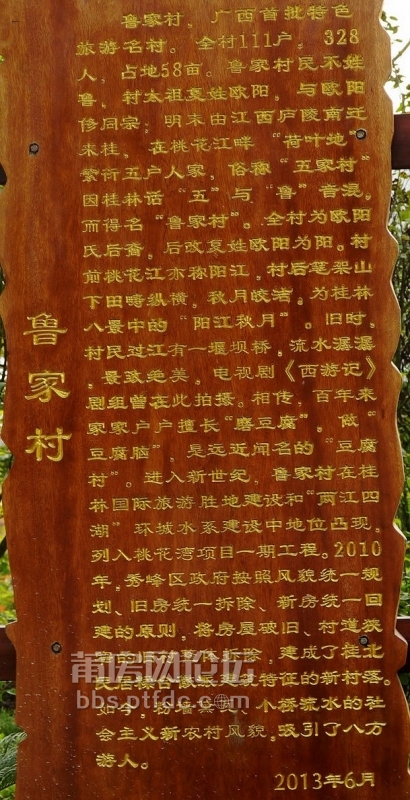 鲁家村
鲁家村，广西首批特色
旅游名村。全村111户，328
人，占地58亩。鲁家村民不姓
鲁，村太祖复姓欧阳，与欧阳
修同宗，明末由江西庐陵南迁
来桂，在桃花江畔“荷叶地”
繁衍五户人家，俗称“五家村”
因桂林话“五”与“鲁”音混，
而得名“鲁家村”。全村为欧阳
氏后裔，后改复姓欧阳为阳。村
前桃花江亦称阳江，村后笔架山
下田畴纵横，秋月皎洁。为桂林
八景中的“阳江秋月”。旧时，
村民过江有一堰坝桥，流水潺潺
，景致绝美。电视剧《西游记》
剧组曾在此拍摄。相传，百年来
家家户户擅长“磨豆腐”、做“
豆腐脑”，是远近闻名的“豆腐
村”。进入新世纪，鲁家村在桂
林国际旅游胜地建设和“两江四
湖”环城水系建设中地位凸现，
列入桃花湾项目一期工程。2010
年，秀峰区政府按照风貌统一规
划、旧房统一拆除、新房统一回
建的原则，将房屋破旧、村道狭
拆除，建成了桂北
特征的新村落。
如今，个桥流水的社
会主义新农村风貌，吸引了八方
游人。
2013年6月
莆房网论坛
bbs.ptfdc.com